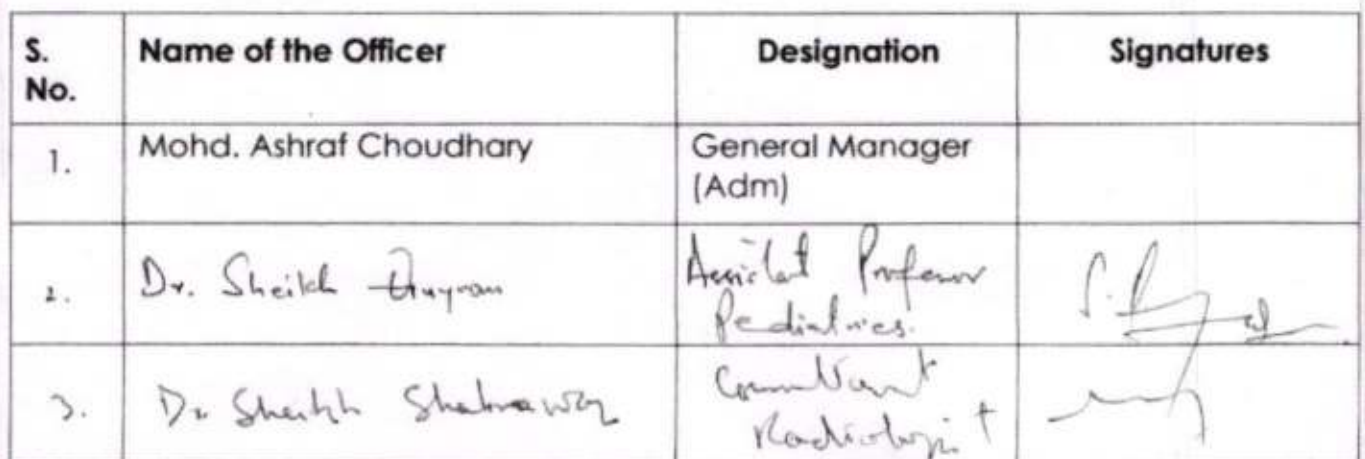 S. No. Name of the Officer Designation Signatures
1. Mohd. Ashraf Choudhary General Manager (Adm)
2. Dr. Sheikh Assistant Professor Pediatrics.
3. Dr Sheikh Consultant Radiologist